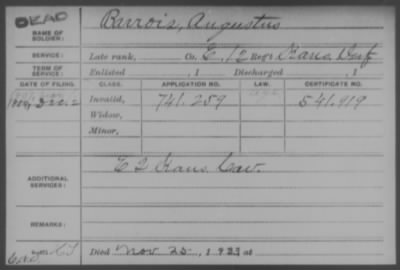 DEAD
NAME OF SOLDIER: Barrois, Augustus
SERVICE: Late rank, Co. E, 12 Reg't Kans. Inf
TERM OF SERVICE: Enlisted , 1 Discharged , 1
DATE OF FILING. CLASS. APPLICATION NO. LAW. CERTIFICATE NO.
Dec. 2 Invalid, 741.259 541.919
Widow,
Minor,
ADDITIONAL SERVICES: E 2 Kans. Cav.
REMARKS:
Died Nov 25, 1923 at